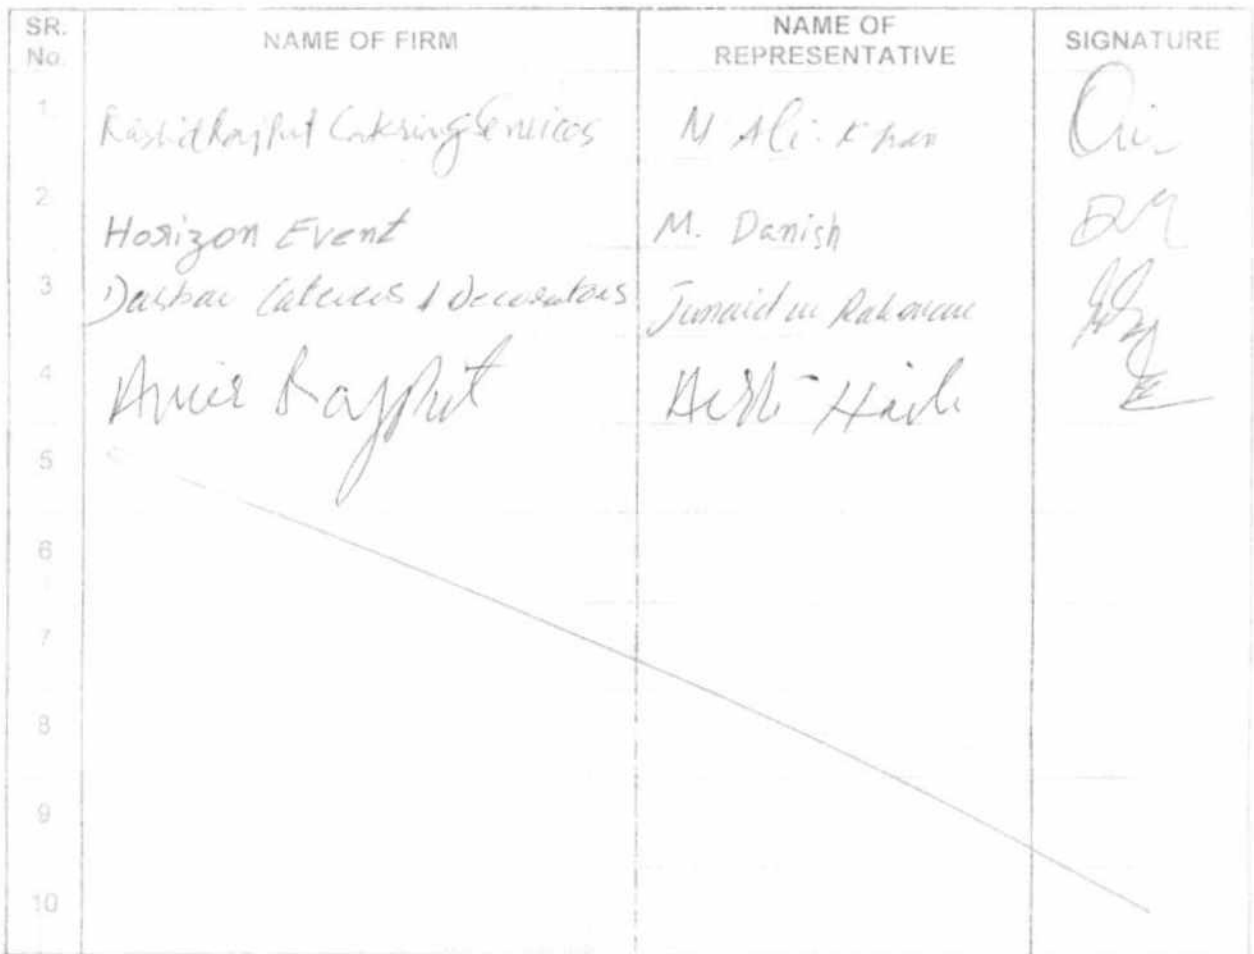 SR. No. NAME OF FIRM NAME OF REPRESENTATIVE SIGNATURE
1 Rashid Rajput Catering Services M Ali Khan
2 Horizon Event M. Danish
3 Darbar Caterers & Decorators Junaid ur Rahman
4 Amir Rajput
5
6
7
8
9
10